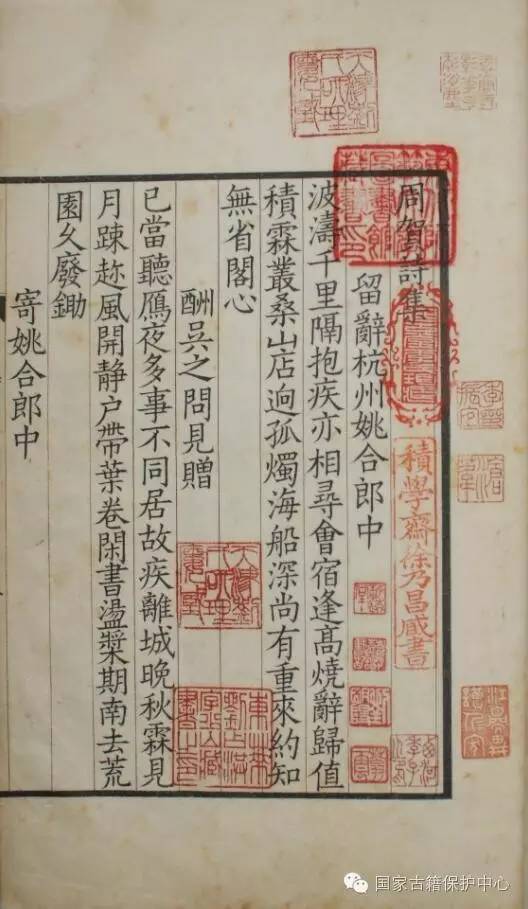 周賀詩集
留辭杭州姚合郎中
波濤千里隔抱疾亦相尋會宿逢髙燒辭歸值
積霖叢桑山店逈孤燭海船深尚有重來約知
無省閣心
酬吳之問見贈
已當聽鴈夜多事不同居故疾離城晚秋霖見
月踈趂風開静户帶葉卷閑書盪槳期南去荒
園乆廢鋤
寄姚合郎中
積學齋徐乃昌藏書
国家古籍保护中心